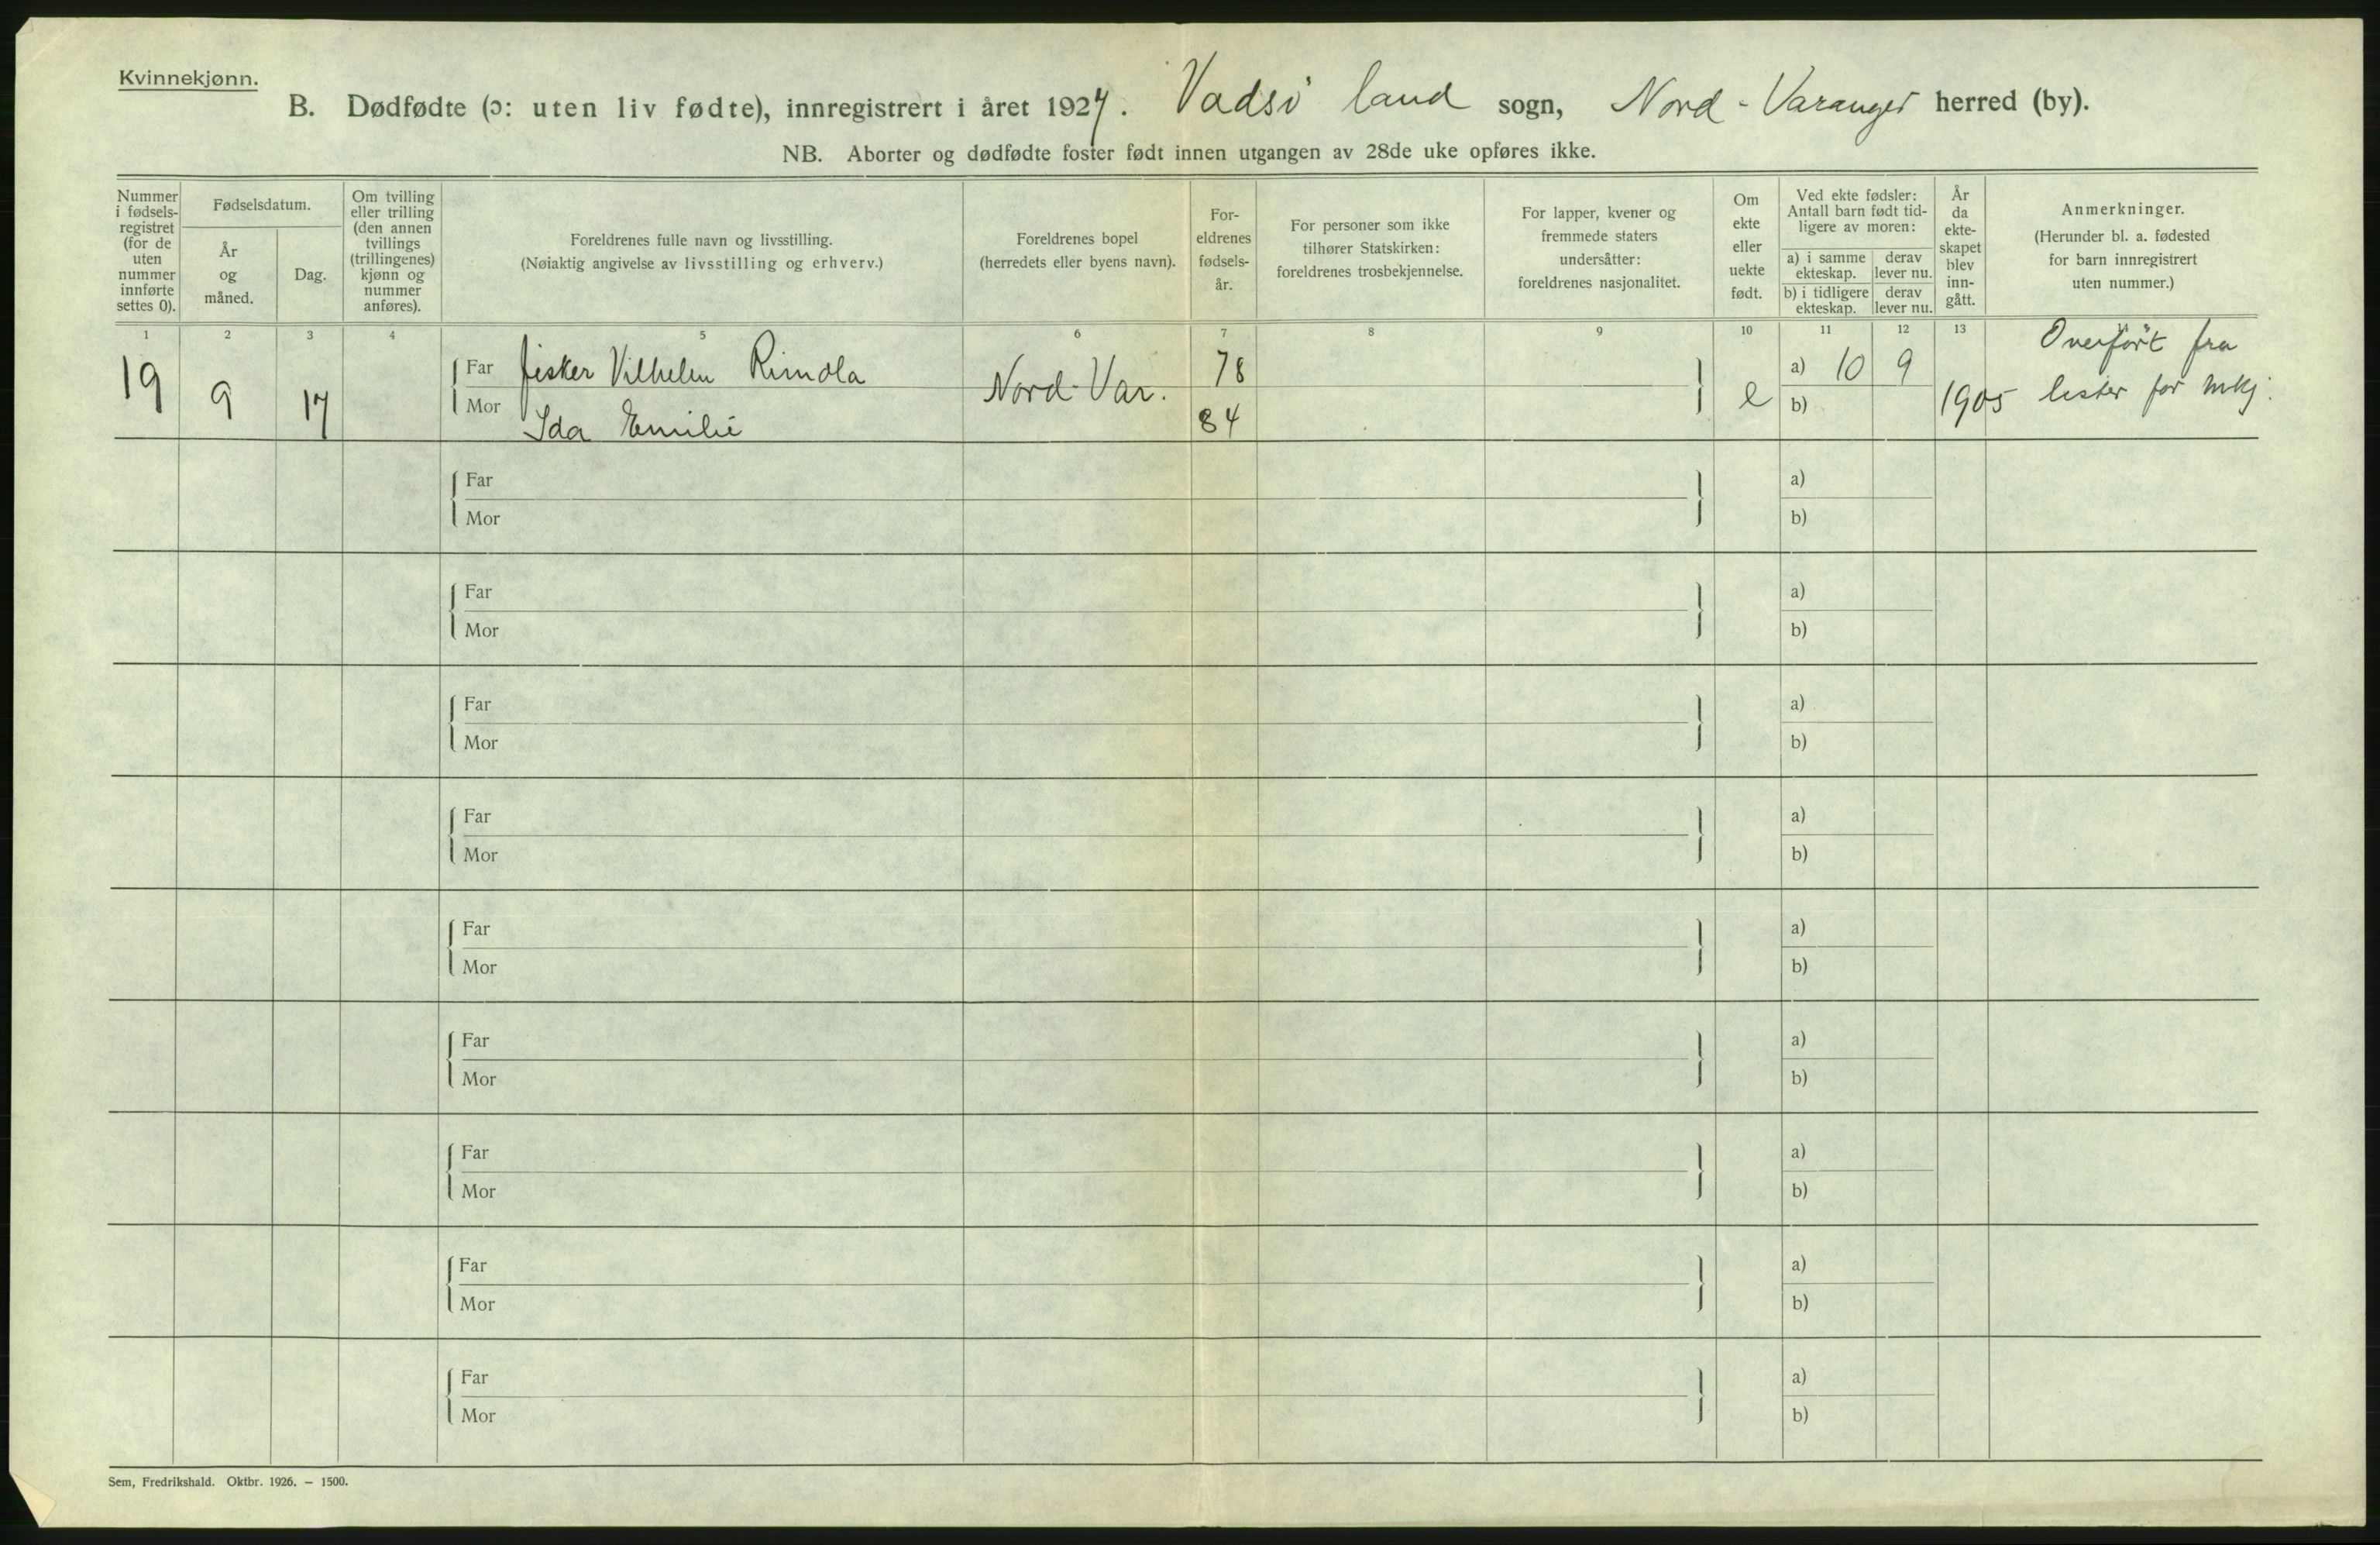 Kvinnekjønn.
B. Dødfødte (ɔ: uten liv fødte), innregistrert i året 1927. Vadsö land sogn, Nord-Varanger herred (by).
NB. Aborter og dødfødte foster født innen utgangen av 28de uke opføres ikke.
Nummer i fødsels-registret (for de uten nummer innførte settes 0).
Fødselsdatum.
År og måned.
Dag.
Om tvilling eller trilling (den annen tvillings (trillingenes) kjønn og nummer anføres).
Foreldrenes fulle navn og livsstilling.
(Nøiaktig angivelse av livsstilling og erhverv.)
Foreldrenes bopel
(herredets eller byens navn).
For-eldrenes fødsels-år.
For personer som ikke tilhører Statskirken: foreldrenes trosbekjennelse.
For lapper, kvener og fremmede staters undersåtter: foreldrenes nasjonalitet.
Om ekte eller uekte født.
Ved ekte fødsler: Antall barn født tid-ligere av moren:
a) i samme ekteskap.
derav lever nu.
b) i tidligere ekteskap.
derav lever nu.
År da ekte-skapet blev inn-gått.
Anmerkninger.
(Herunder bl. a. fødested for barn innregistrert uten nummer.)
1 2 3 4 5 6 7 8 9 10 11 12 13
19 9 17 Far fisker Vilhelm Rimola Nord-Var. 78 e a) 10 9 1905 Overført fra
Mor Ida Emilie 84 b) lister for mkj.
Far a)
Mor b)
Far a)
Mor b)
Far a)
Mor b)
Far a)
Mor b)
Far a)
Mor b)
Far a)
Mor b)
Far a)
Mor b)
Far a)
Mor b)
Far a)
Mor b)
Sem, Fredrikshald. Oktbr. 1926. – 1500.